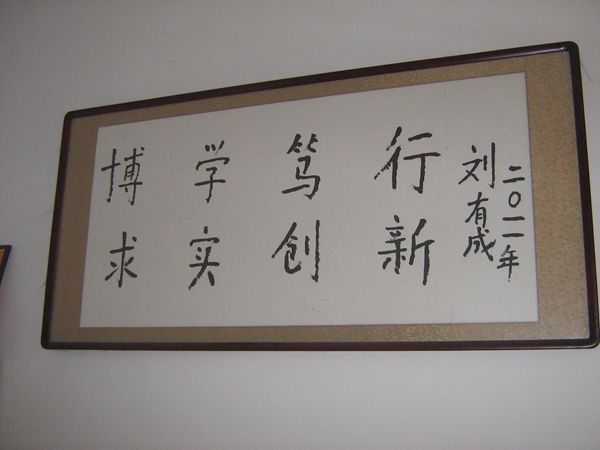 博学笃行
求实创新
刘有成
二〇一一年